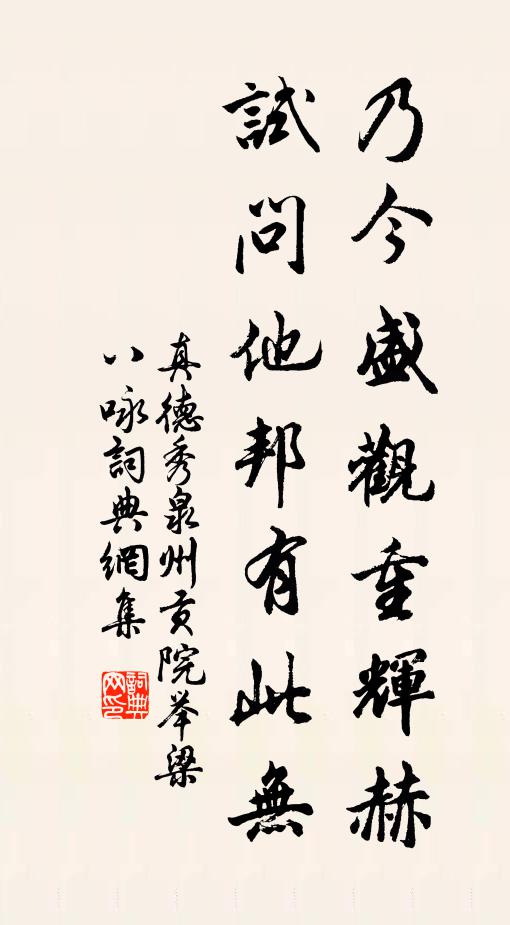 乃今盛觀重輝赫
試問他邦有此無
真德秀泉州贡院举梁
八咏詞典網集
詞典
网印